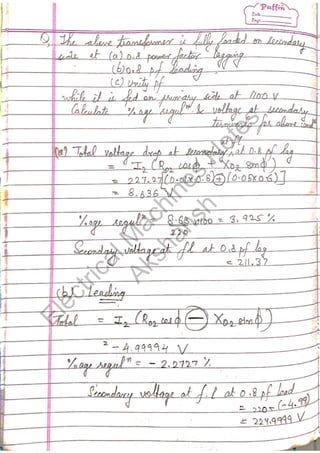 Puffin
Date
Page
Q, The above transformer is fully loaded on secondary
side at (a) 0.8 power factor lagging
(b) 0.8 pf leading
(c) Unity pf
while it is fed on primary side at 1100 V
Calculate %age regulⁿ & voltage at secondary
terminals for above condⁿ
(a) Total voltage drop at secondary, at 0.8 pf lag
= I₂ (R₀₂ cosϕ + X₀₂ sinϕ)
= 227.27 [(0.01×0.8) ⊕ (0.05×0.6)]
= 8.636 V
%age regulⁿ = 8.63 ×100 = 3.925 %
220
Secondary voltage at fl at 0.8 pf lag
= 211.37
(b) Leading
Total = I₂ (R₀₂ cosϕ ⊖ X₀₂ sinϕ)
= -4.99994 V
%age regulⁿ = -2.2727 %
Secondary voltage at f.l at 0.8 pf lead
= 220-(-4.99)
= 224.9999 V
Electrical Machines Notes
Akshansh